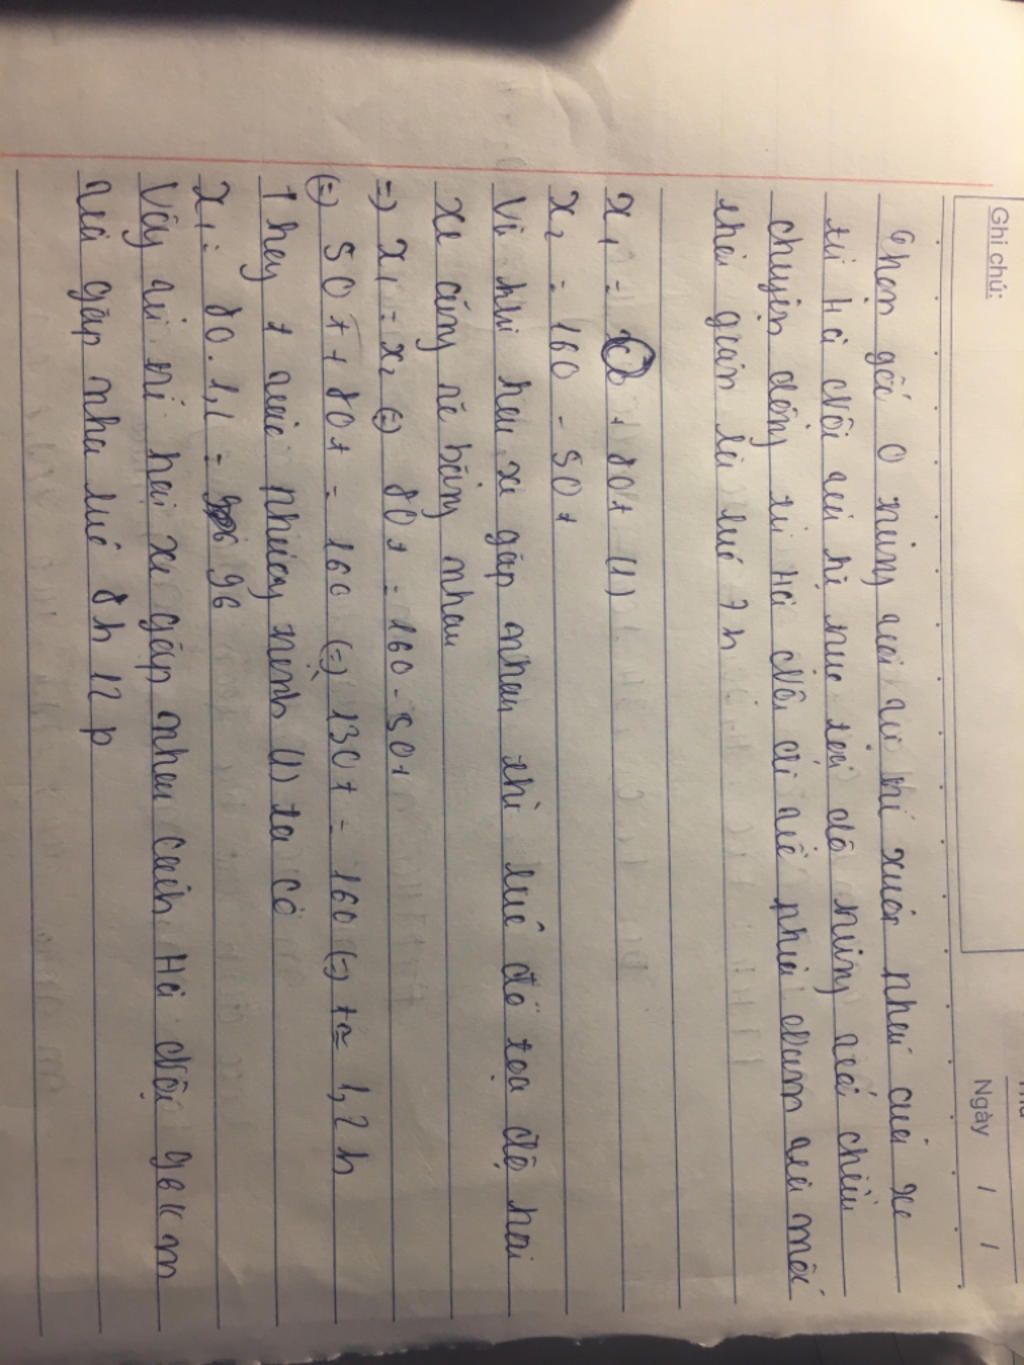 Thứ
Ghi chú: Ngày / /
Chọn gốc O trùng với vị trí xuất phát của xe
từ Hà Nội với hệ trục toạ độ trùng với chiều
chuyển động từ Hà Nội đi về phía Nam và mốc
thời gian là lúc 7h
x₁ = + 80t (1)
x₂ = 160 - 50t
Vì khi hai xe gặp nhau thì lúc đó tọa độ hai
xe cũng sẽ bằng nhau
=> x₁ = x₂ (=) 80t = 160 - 50t
(=) 50t + 80t = 160 (=) 130t = 160 (=) t ≈ 1,2 h
Thay t vào phương trình (1) ta có
x₁ = 80.1,2 = 96
Vậy vị trí hai xe gặp nhau cách Hà Nội 96km
và gặp nhau lúc 8h 12p